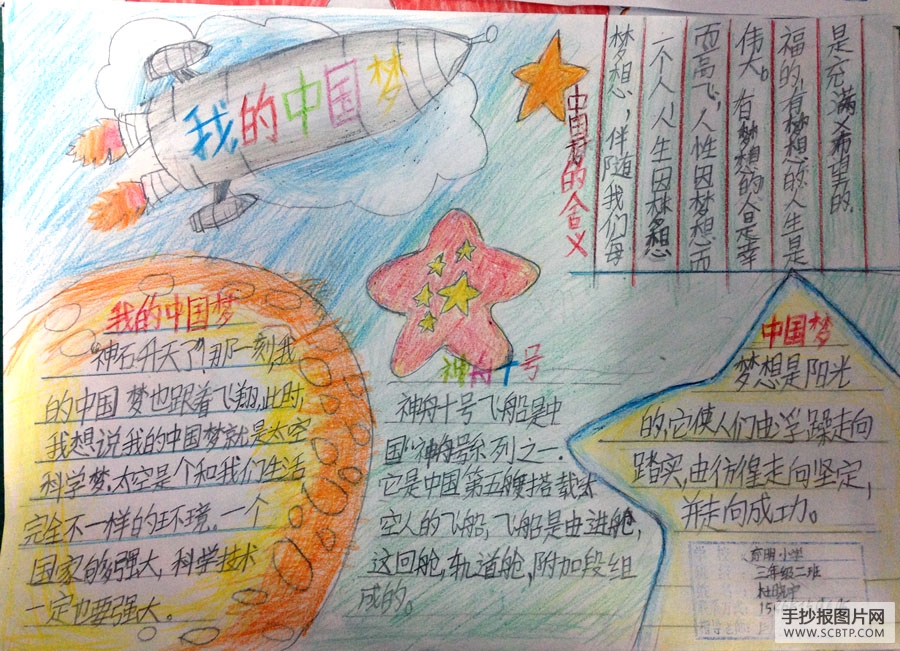 我的中国梦
中国梦的含义
梦想，伴随我们每
一个人 人生因梦想
而高飞，人性因梦想而
伟大。有梦想的人是幸
福的，有梦想的人生是
是充满希望的.
我的中国梦
"神石升天了"那一刻,我
的中国梦也跟着飞翔,此时,
我想说我的中国梦就是太空
科学梦,太空是个和我们生活
完全不一样的环境。一个
国家够强大,科学技术
一定也要强大。
神舟十号
神舟十号飞船是中
国"神舟"号系列之一.
它是中国第五艘搭载太
空人的飞船,飞船是由进舱,
这回舱,轨道舱,附加段组
成的。
中国梦
梦想是阳光
的,它使人们由浮躁走向
踏实,由彷徨走向坚定,
并走向成功。
小学
三年级二班
手抄报图片网
WWW.SCBTP.COM